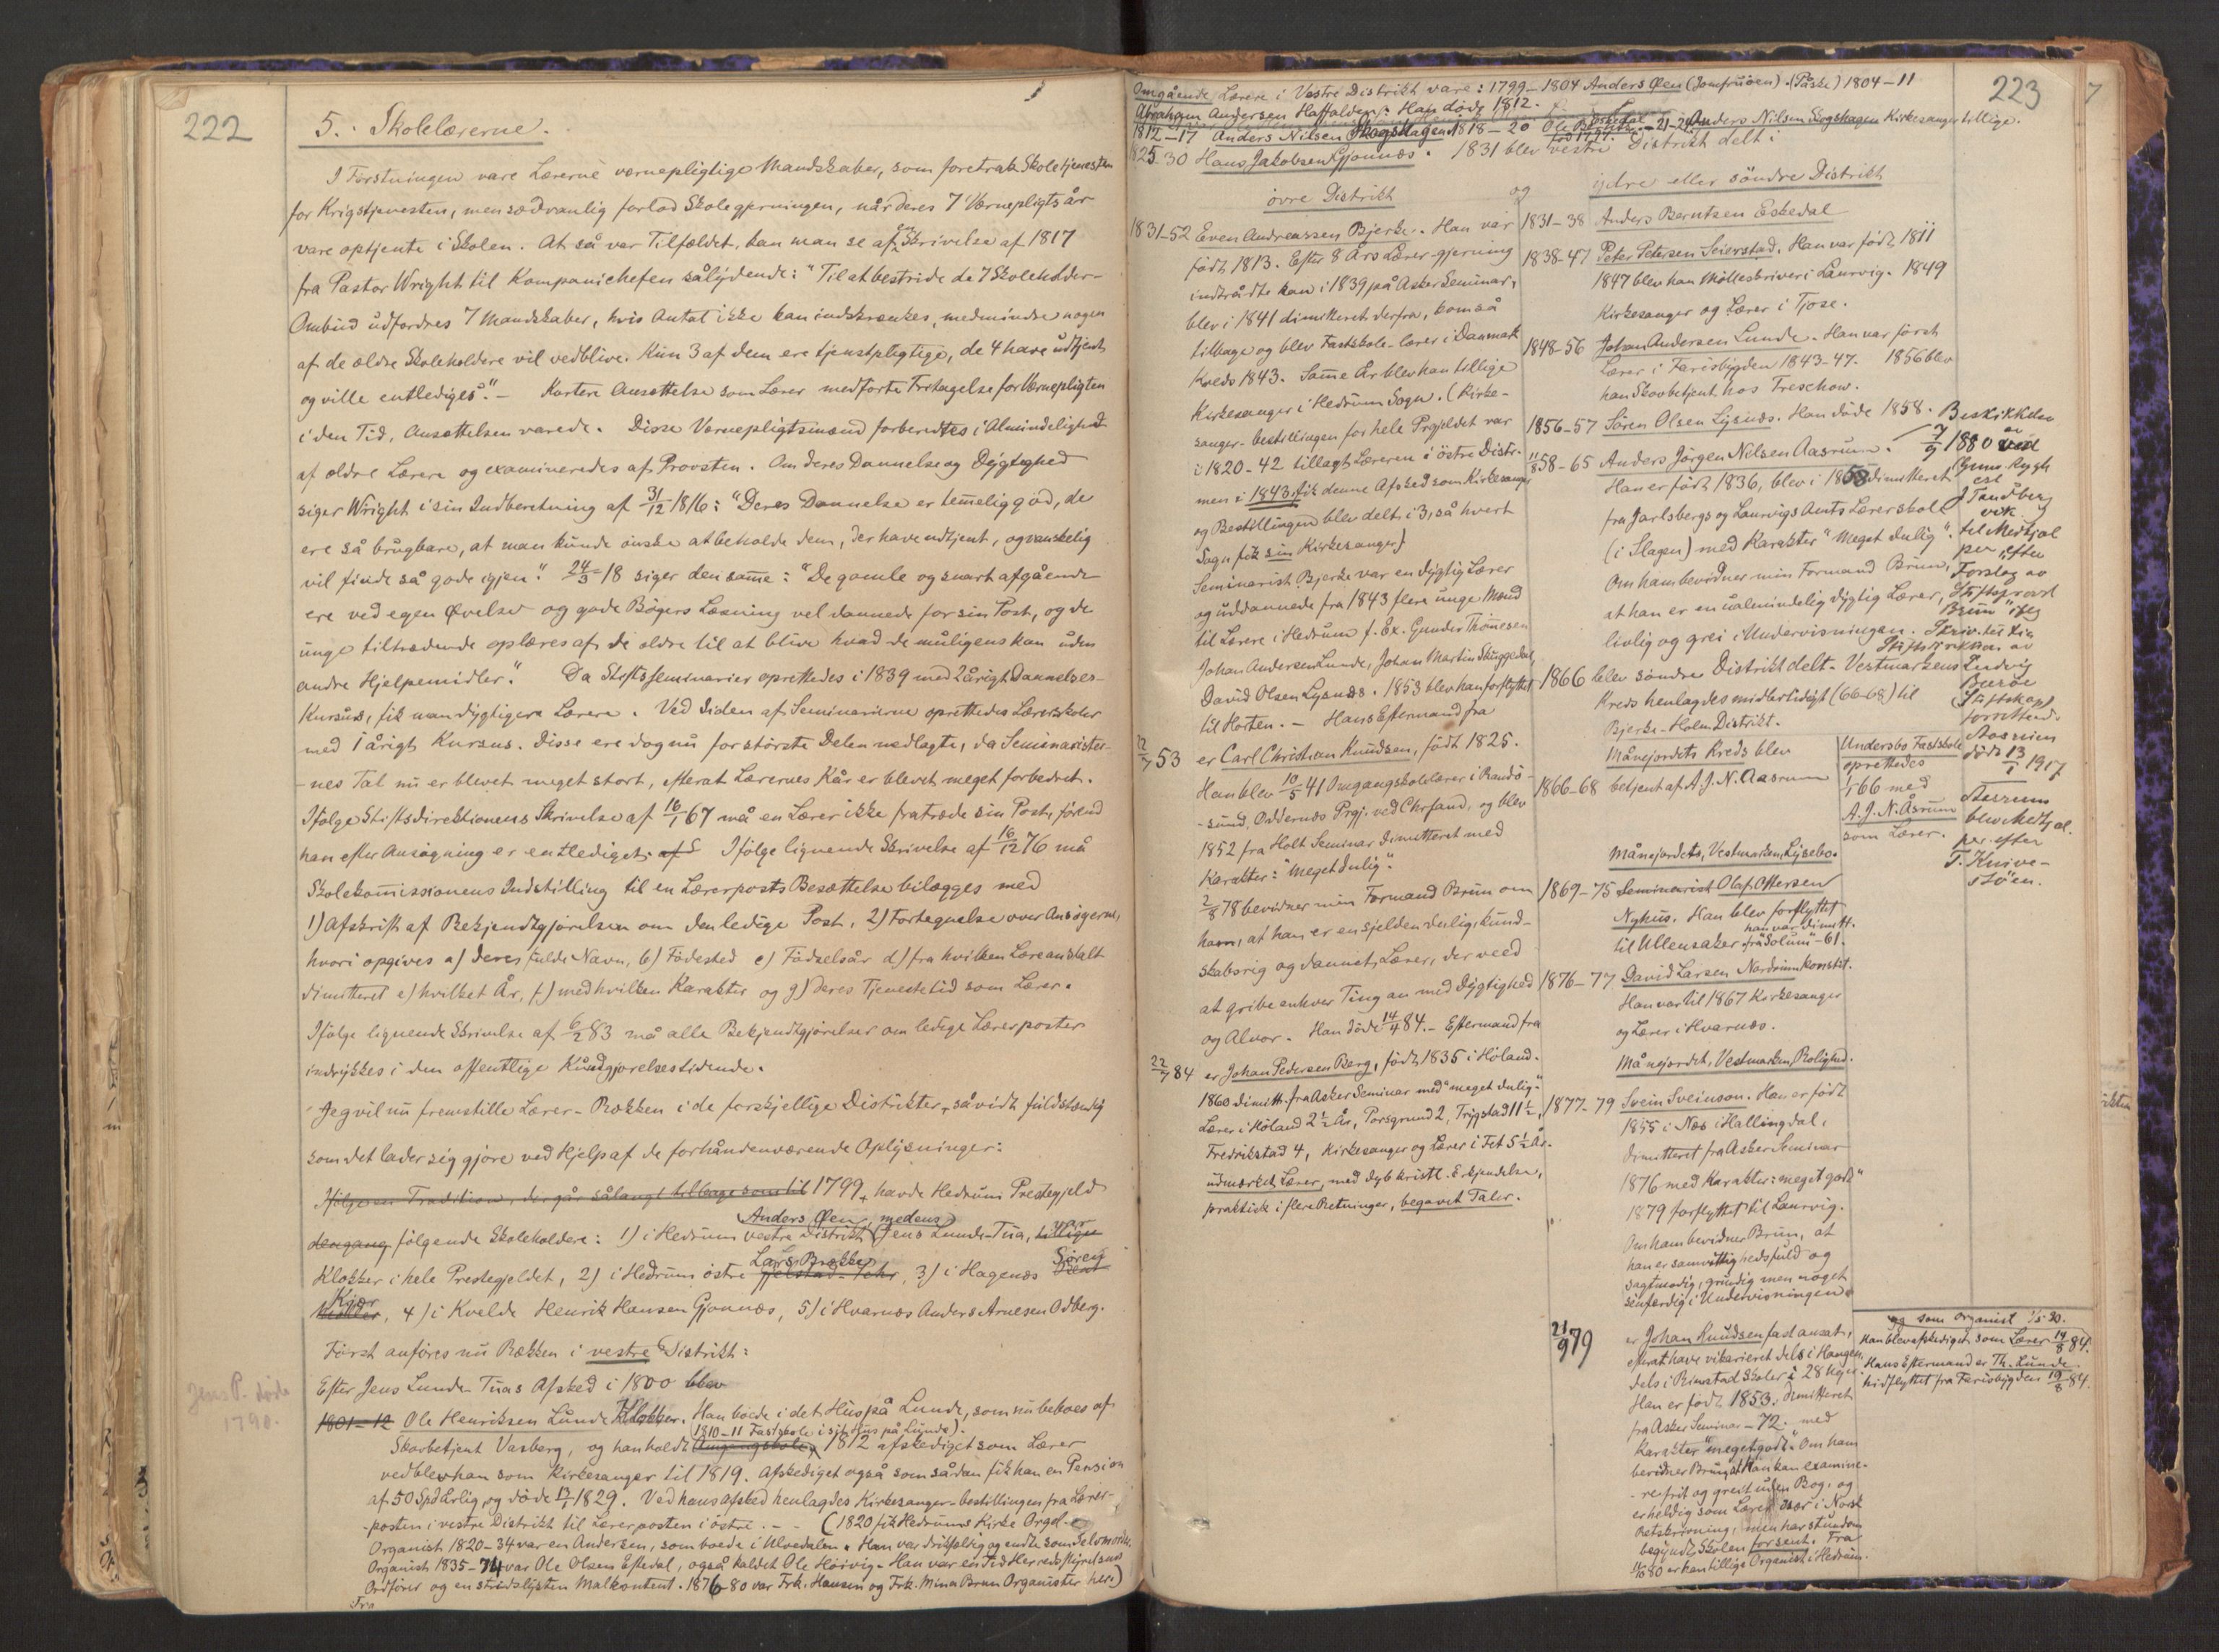 222
5. Skolelærerne.
I Førstningen vare Lærerne værnepligtige Mandskaber, som foretrak Skoletjenesten
for Krigstjenesten, men sædvanlig forlod Skolegjerningen, når deres 7 Værnepligtsår
vare optjente i Skolen. At så var Tilfældet, kan man se af en Skrivelse af 1817
fra Pastor Wright til Kompanichefen sålydende: "Til at bestride de 7 Skoleholder-
Ombud udfordres 7 Mandskaber, hvis Antal ikke kan indskrænkes, medmindre nogen
af de ældre Skoleholdere vil vedblive. Kun 3 af dem ere tjenstpligtige, de 4 have udtjent
og ville entlediges." – Kortere Ansættelse som Lærer medførte Fritagelse for Værnepligten
i den Tid, Ansættelsen varede. Disse Værnepligtsmænd forberedtes i Almindelighed
af ældre Lærere og examineredes af Provsten. Om deres Dannelse og Dygtighed
siger Wright i sin Indberetning af 31/12 1816: "Deres Dannelse er temmelig god, de
ere så brugbare, at man kunde ønske at beholde dem, der have udtjent, og vanskelig
vil finde så gode igjen." 24/3 18 siger den samme: "De gamle og snart afgående
ere ved egen Øvelse og gode Bøgers Læsning vel dannede for sin Post, og de
unge tiltrædende oplæres af de ældre til at blive hvad de muligens kan uden
andre Hjelpemidler." Da Stiftsseminarier oprettedes i 1839 med 2årigt Dannelses-
Kursus, fik man dygtigere Lærere. Ved Siden af Seminarierne oprettedes Lærerskoler
med 1 årigt Kursus. Disse ere dog nu for største Delen nedlagte, da Seminarister-
-nes Tal nu er blevet meget stort, efterat Lærernes Kår er blevet meget forbedret.
Ifølge Stiftsdirektionens Skrivelse af 16/1 67 må en Lærer ikke fratræde sin Post, førend
han efter Ansøgning er entlediget. Ifølge lignende Skrivelse af 16/12 76 må
Skolekommissionens Indstilling til en Lærerposts Besættelse bilægges med
1) Afskrift af Bekjendtgjørelsen om den ledige Post, 2) Fortegnelse over Ansøgerne,
hvori opgives a) deres fulde Navn, b) Fødested c) Fødselsår d) fra hvilken Læreanstalt
dimitteret e) hvilket År, f) med hvilken Karakter og g) deres Tjenestetid som Lærer.
Ifølge lignende Skrivelse af 6/2 83 må alle Bekjendtgjørelser om ledige Lærerposter
indrykkes i den offentlige Kundgjørelsestidende.
Jeg vil nu fremstille Lærer-Rækken i de forskjellige Distrikter, såvidt fuldstændig
som det lader sig gjøre ved Hjelp af de forhåndenværende Oplysninger:
Ifølge en Tradition, der går sålangt tilbage som til 1799, havde Hedrum Prestegjeld
Anders Øen, medens
dengang følgende Skoleholdere: 1) i Hedrum vestre Distrikt Jens Lunde-Tua, var
Lars Brække Søren
Klokker i hele Prestegjeldet, 2) i Hedrum østre, 3) i Hagenæs
Kjær
, 4) i Kvelde Henrik Hansen Gjønnæs, 5) i Hvarnæs Anders Arnesen Odberg.
Først anføres nu Rækken i vestre Distrikt:
Efter Jens Lunde-Tuas Afsked i 1800 blev
Jens P. døde
1790.
1801–12 Ole Henriksen Lunde Klokker. Han boede i det Hus på Lunde, som nu beboes af
1810–11 Fastskole i sit Hus på Lunde).
Skovbetjent Vasberg, og han holdt Omgangsskole, 1812 afskediget som Lærer
vedblev han som Kirkesanger til 1819. Afskediget også som sådan fik han en Pension
af 50 Spd årlig og døde 13/1 1829. Ved hans Afsked henlagdes Kirkesanger-bestillingen fra Lærer-
-posten i vestre Distrikt til Lærerposten i østre. – (1820 fik Hedrums Kirke Orgel.
Organist 1820–34 var en Andersen, som boede i Ulvedalen. Han var drikfældig og endte som Selvmorder.
Organist 1835–74 var Ole Olsen Eftedal, også kaldet Ole Høivig. Han var en Tid Herredsstyrelsens
Ordfører og en stridslysten Malkontent. 1876–80 var Frk. Hansen og Frk. Mina Brun Organister her.)
Fra
223
Omgående Lærere i Vestre Distrikt vare: 1799–1804 Anders Øen (Jomfruøen). (Påske) 1804–11
Abraham Andersen Haffalden. Han døde 1812.
1812–17 Anders Nilsen Skogshagen. 1818–20 Ole –21–24 Anders Nilsen Skogshagen Kirkesanger tillige.
1825–30 Hans Jakobsen Gjønnæs. 1831 blev vestre Distrikt delt i
øvre Distrikt og ydre eller søndre Distrikt
1831–52 Even Andreassen Bjerke. Han var
født 1813. Efter 8 Års Lærer-gjerning
indtrådte han i 1839 på Asker Seminar,
blev i 1841 dimitteret derfra, kom så
tilbage og blev Fastskole-lærer i Danmark
Kreds 1843. Samme År blev han tillige
Kirkesanger i Hedrum Sogn. (Kirke-
sanger-bestillingen for hele Prgjeldet var
i 1820–42 tillagt Læreren i østre Distr.
men i 1843 fik denne Afsked som Kirkesanger
og Bestillingen blev delt i 3, så hvert
Sogn fik sin Kirkesanger)
Seminarist Bjerke var en dygtig Lærer
og uddannede fra 1843 flere unge Mænd
til Lærere i Hedrum f. Ex. Gunder Thommesen
Johan Andersen Lunde, Johan Martin Skuggedal,
David Olsen Lysnæs. 1853 blev han forflyttet
til Horten. – Hans Eftermand fra
22/7 53 er Carl Christian Knudsen, født 1825.
Han blev 10/5 41 Omgangsskolelærer i Randø-
-sund, Oddernæs Prgj. ved Chrsand, og blev
1852 fra Holt Seminar dimitteret med
Karakter: "Meget dulig".
2/8 78 bevidner min Formand Brun om
ham, at han er en sjelden dulig, kund-
skabsrig og dannet Lærer, der veed
at gribe enhver Ting an med Dygtighed
og Alvor. Han døde 14/4 84. – Eftermand fra
22/7 84 er Johan Pedersen Berg, født 1835 i Høland.
1860 dimitt. fra Asker Seminar med "meget dulig."
Lærer i Høland 2½ År, Porsgrund 2, Trygstad 11½,
Fredrikstad 4, Kirkesanger og Lærer i Fet 5½ År.
udmærket Lærer, med dyb kristl. Erkjendelse,
praktisk i flere Retninger, begavet Taler.
1831–38 Anders Berntsen Eskedal
1838–47 Peter Petersen Seierstad. Han var født 1811
1847 blev han Mølleskriver i Laurvig. 1849
Kirkesanger og Lærer i Tjose.
1848–56 Johan Andersen Lunde. Han var først
Lærer i Farisbygden 1843–47. 1856 blev
han Skovbetjent hos Treschow.
1856–57 Søren Olsen Lysnæs. Han døde 1858.
11/8 58–65 Anders Jørgen Nilsen Aasrum.
Han er født 1836, blev i 1858 dimitteret
fra Jarlsbergs og Laurvigs Amts Lærerskole
(i Slagen) med Karakter "Meget dulig".
Om ham bevidner min Formand Brun,
at han er en ualmindelig dygtig Lærer,
livlig og grei i Undervisningen.
1866 blev søndre Distrikt delt. Vestmarkens
Kreds henlagdes midlertidigt (66–68) til
Bjerke-Holm Distrikt.
Månejordets Kreds blev
1866–68 betjent af A. J. N. Aasrum
Undersbo Fastskole
oprettedes
1/1 66 med
A. J. N. Åsrum
som Lærer.
Månejordets, Vestmarken, Lysebo.
1869–75 Seminarist Olaf Ottersen
Nyhus. Han blev forflyttet
han var dimitt.
til Ullensaker. fra Solum –61.
1876–77 David Larsen Nordrum konstit.
Han var til 1867 Kirkesanger
og Lærer i Hvarnæs.
Månejordet, Vestmarken, Rolighed.
1877–79 Svein Sveinson. Han er født
1855 i Næs i Hallingdal,
dimitteret fra Asker Seminar
1876 med Karakter: meget godt"
1879 forflyttet til Laurvig.
Om ham bevidner Brun, at
han er samvittighedsfuld og
sagtmodig, grundig men noget
senfærdig i Undervisningen.
21/9 79 er Johan Knudsen fast ansat,
efterat have vikarieret dels i Haugen
dels i Rimstad Skoler i 28 Uger.
Han er født 1853. dimitteret
fra Asker Seminar –72. med
Karakter "meget godt." Om ham
bevidner Brun, at han kan examine-
-re frit og greit uden Bog, og
er heldig som Lærer især i Norsk
Retskrivning, men har stundom
begyndt Skolen for sent. Fra
1/5 80 er han tillige Organist i Hedrum.
og som Organist 1/5 80.
Han blev afskediget som Lærer 14/8 84.
Hans Eftermand er Th. Lunde
hidflyttet fra Farisbygden 19/8 84.
Beskikkelse
7/9 1880 ved
J Tandberg
vik.
til Medhjæl
per efter
Forslag av
Stiftsprovst
Brun
Skriv. til fra
Stiftsdirektion av
Ludvig
Stiftskap
Aasrum
døde 13/1 1917
Aasrum
blev Medhjæl.
per efter
T. Knive-
støen.
7